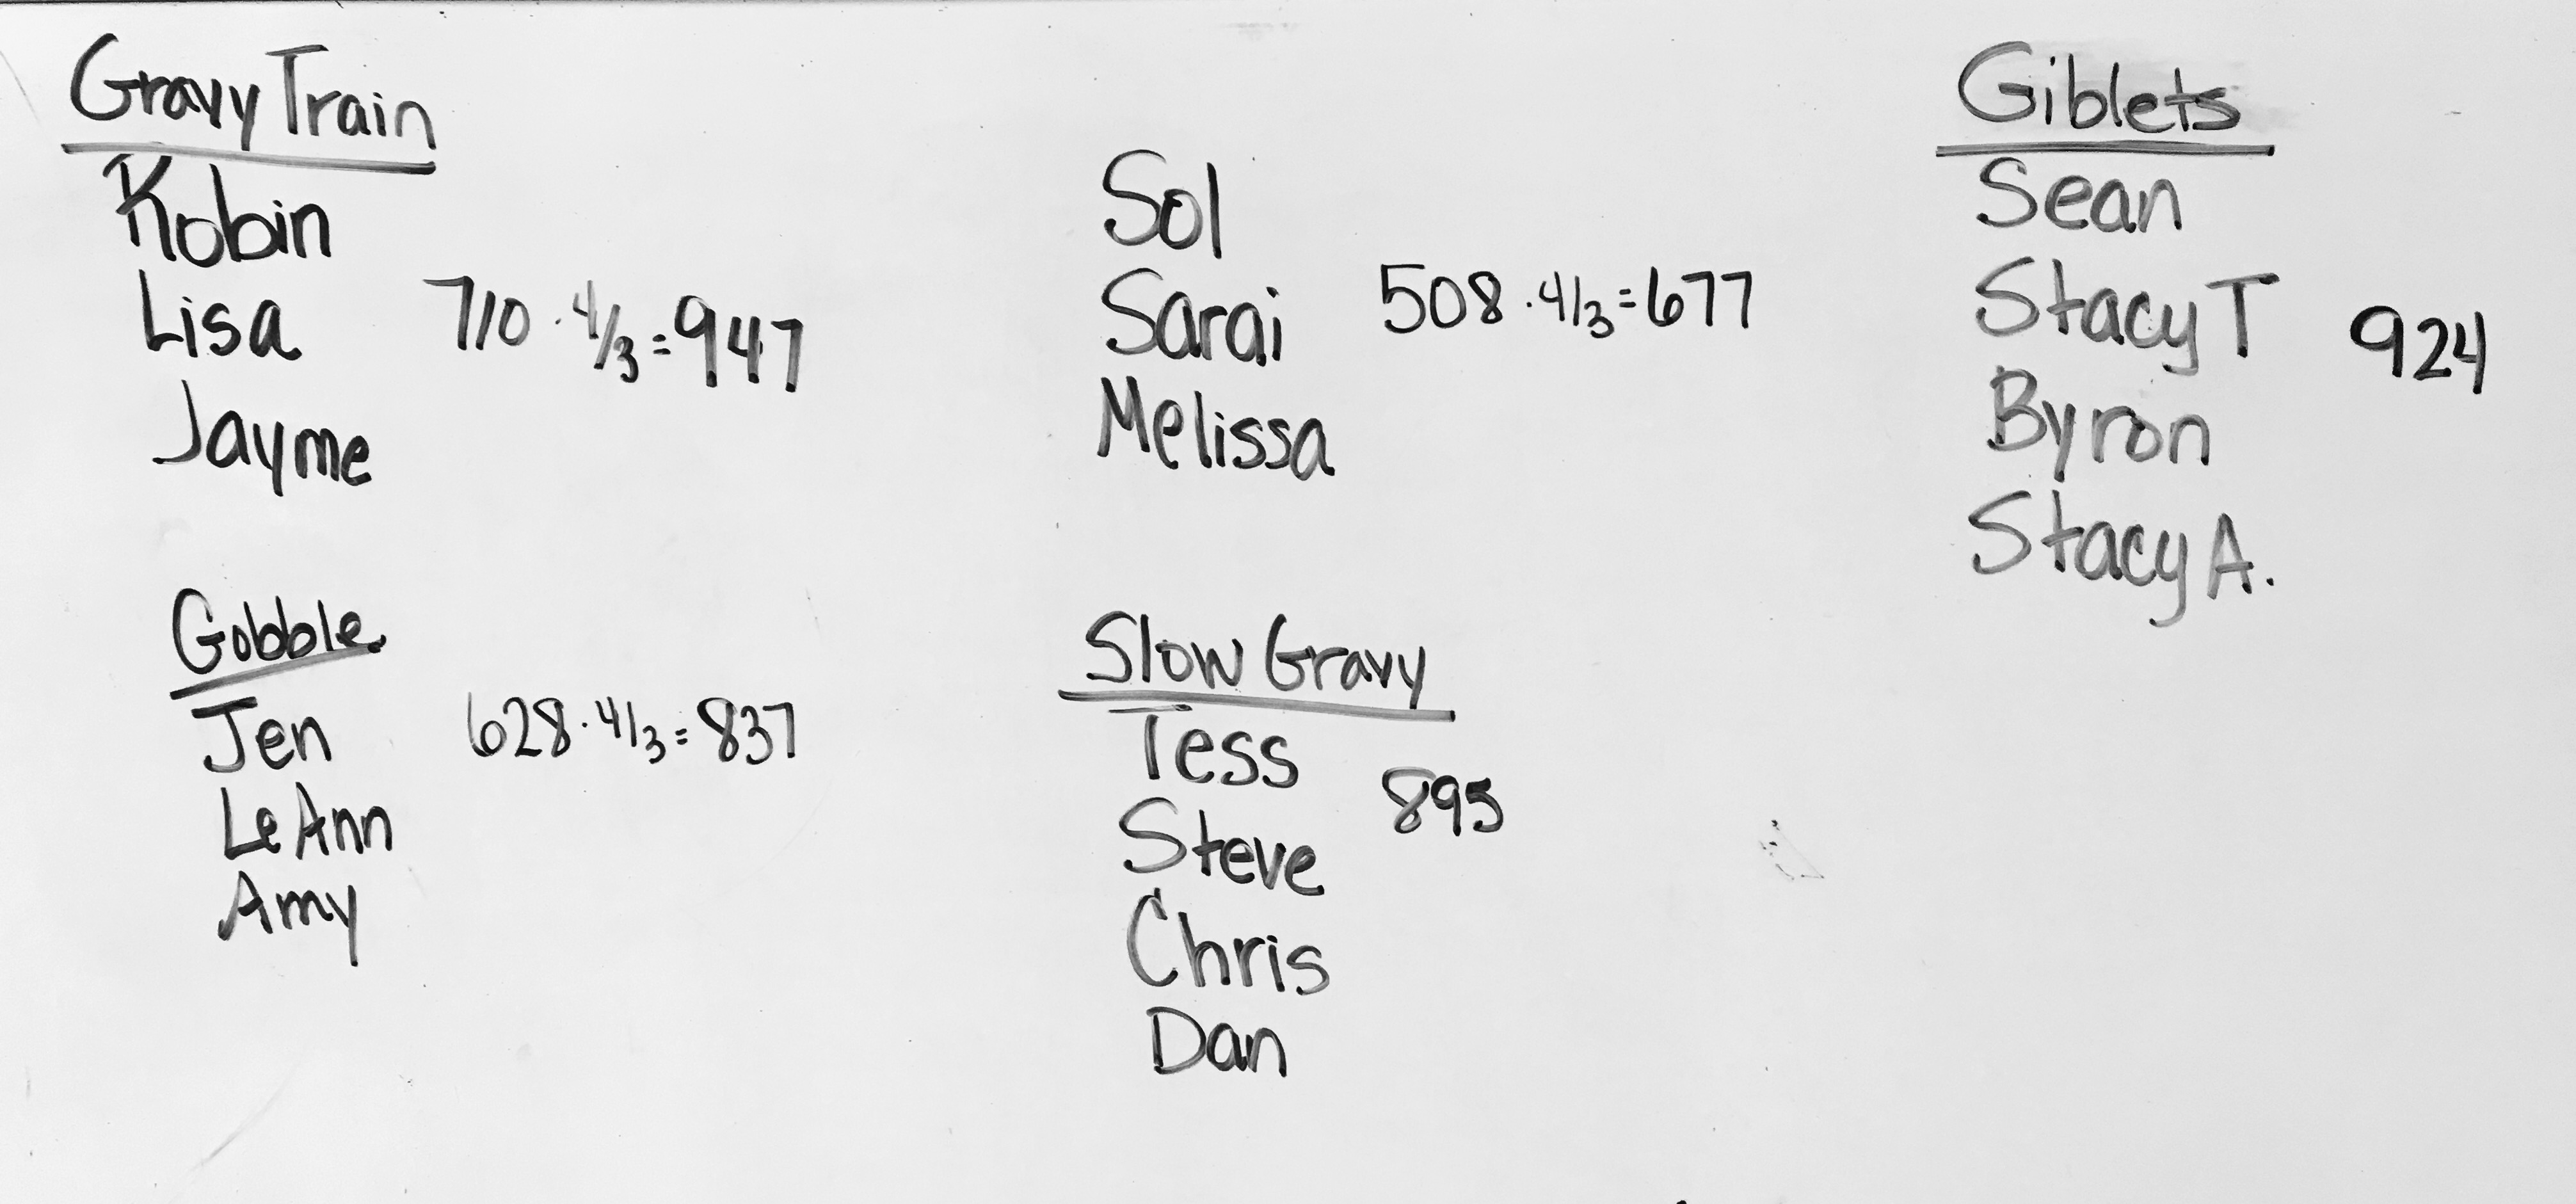 Gravy Train
Robin
Lisa 710 · 4/3 = 947
Jayme
Gobble
Jen 628 · 4/3 = 837
LeAnn
Amy
Sol
Sarai 508 · 4/3 = 677
Melissa
Slow Gravy
Tess
895
Steve
Chris
Dan
Giblets
Sean
Stacy T 924
Byron
Stacy A.